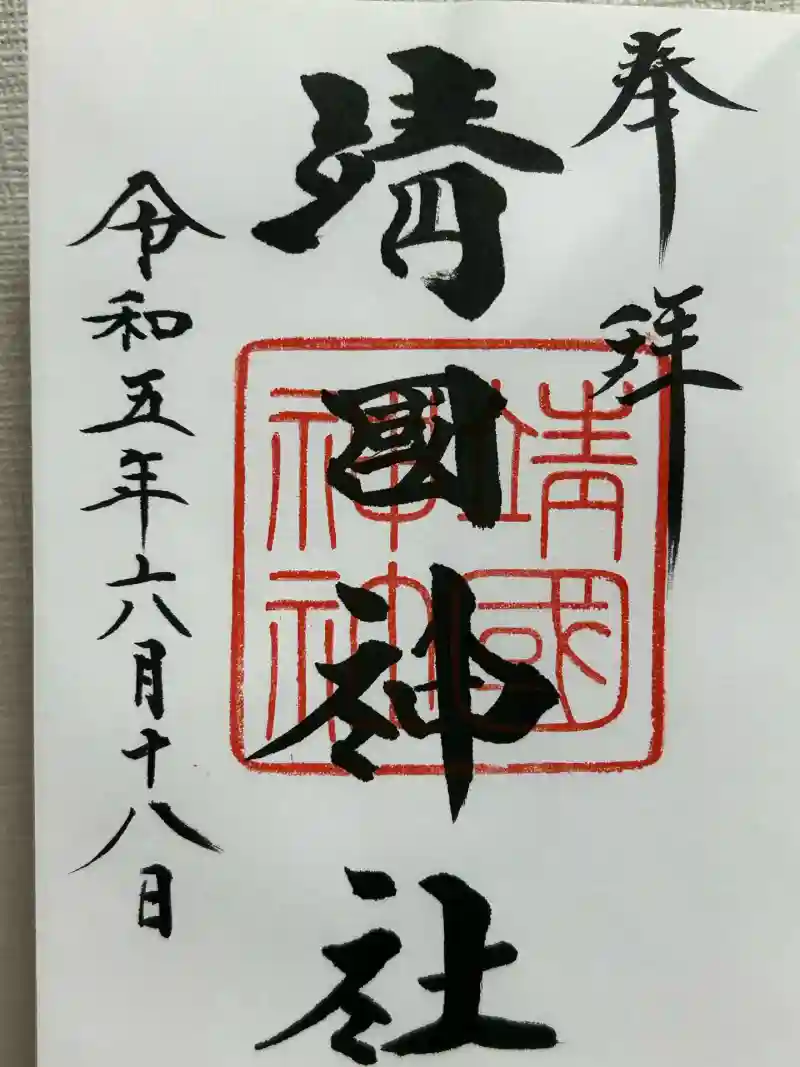 奉拝
靖國神社
靖國
令和五年六月十八日